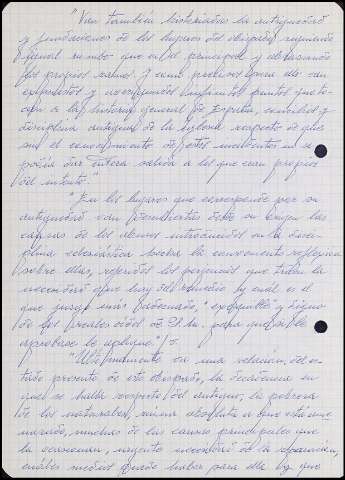 "Van también historiados la antigüedad
y fundaciones de los lugares del obispado, siguiendo
igual rumbo que en el principal y deslazando
los propios
y como precisos para ello van
expuestos y averiguados puntos que to-
can a la historia general de España, concilios y
disciplina antigua de la Iglesia respecto de que
sin el conocimiento de estos incidentes no se
podía dar entera salida a los que eran propios
del intento."
"En los lugares que corresponde por su
antigüedad van
causas de los abusos introducidos en la disci-
plina eclesiástica hecha la conveniente reflexión
sobre ellas, referidos los perjuicios que traen la
necesidad que hay del remedio y cual es el
que juzgo más adecuado, y digno
de los reales oídos de V.M. para que si lo
aprobase le aplique."
"Últimamente en una relación del es-
tado presente de este obispado, la decadencia en
que se halla respecto del antiguo, la pobreza
de los naturales, ruina absoluta a que está ame-
nazado, muchas de las causas principales que
la ocasionan, urgente necesidad de la reparación,
cuáles medios puede haber para ella y que